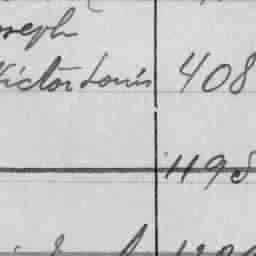 oseph
Victor Louis 408
1198